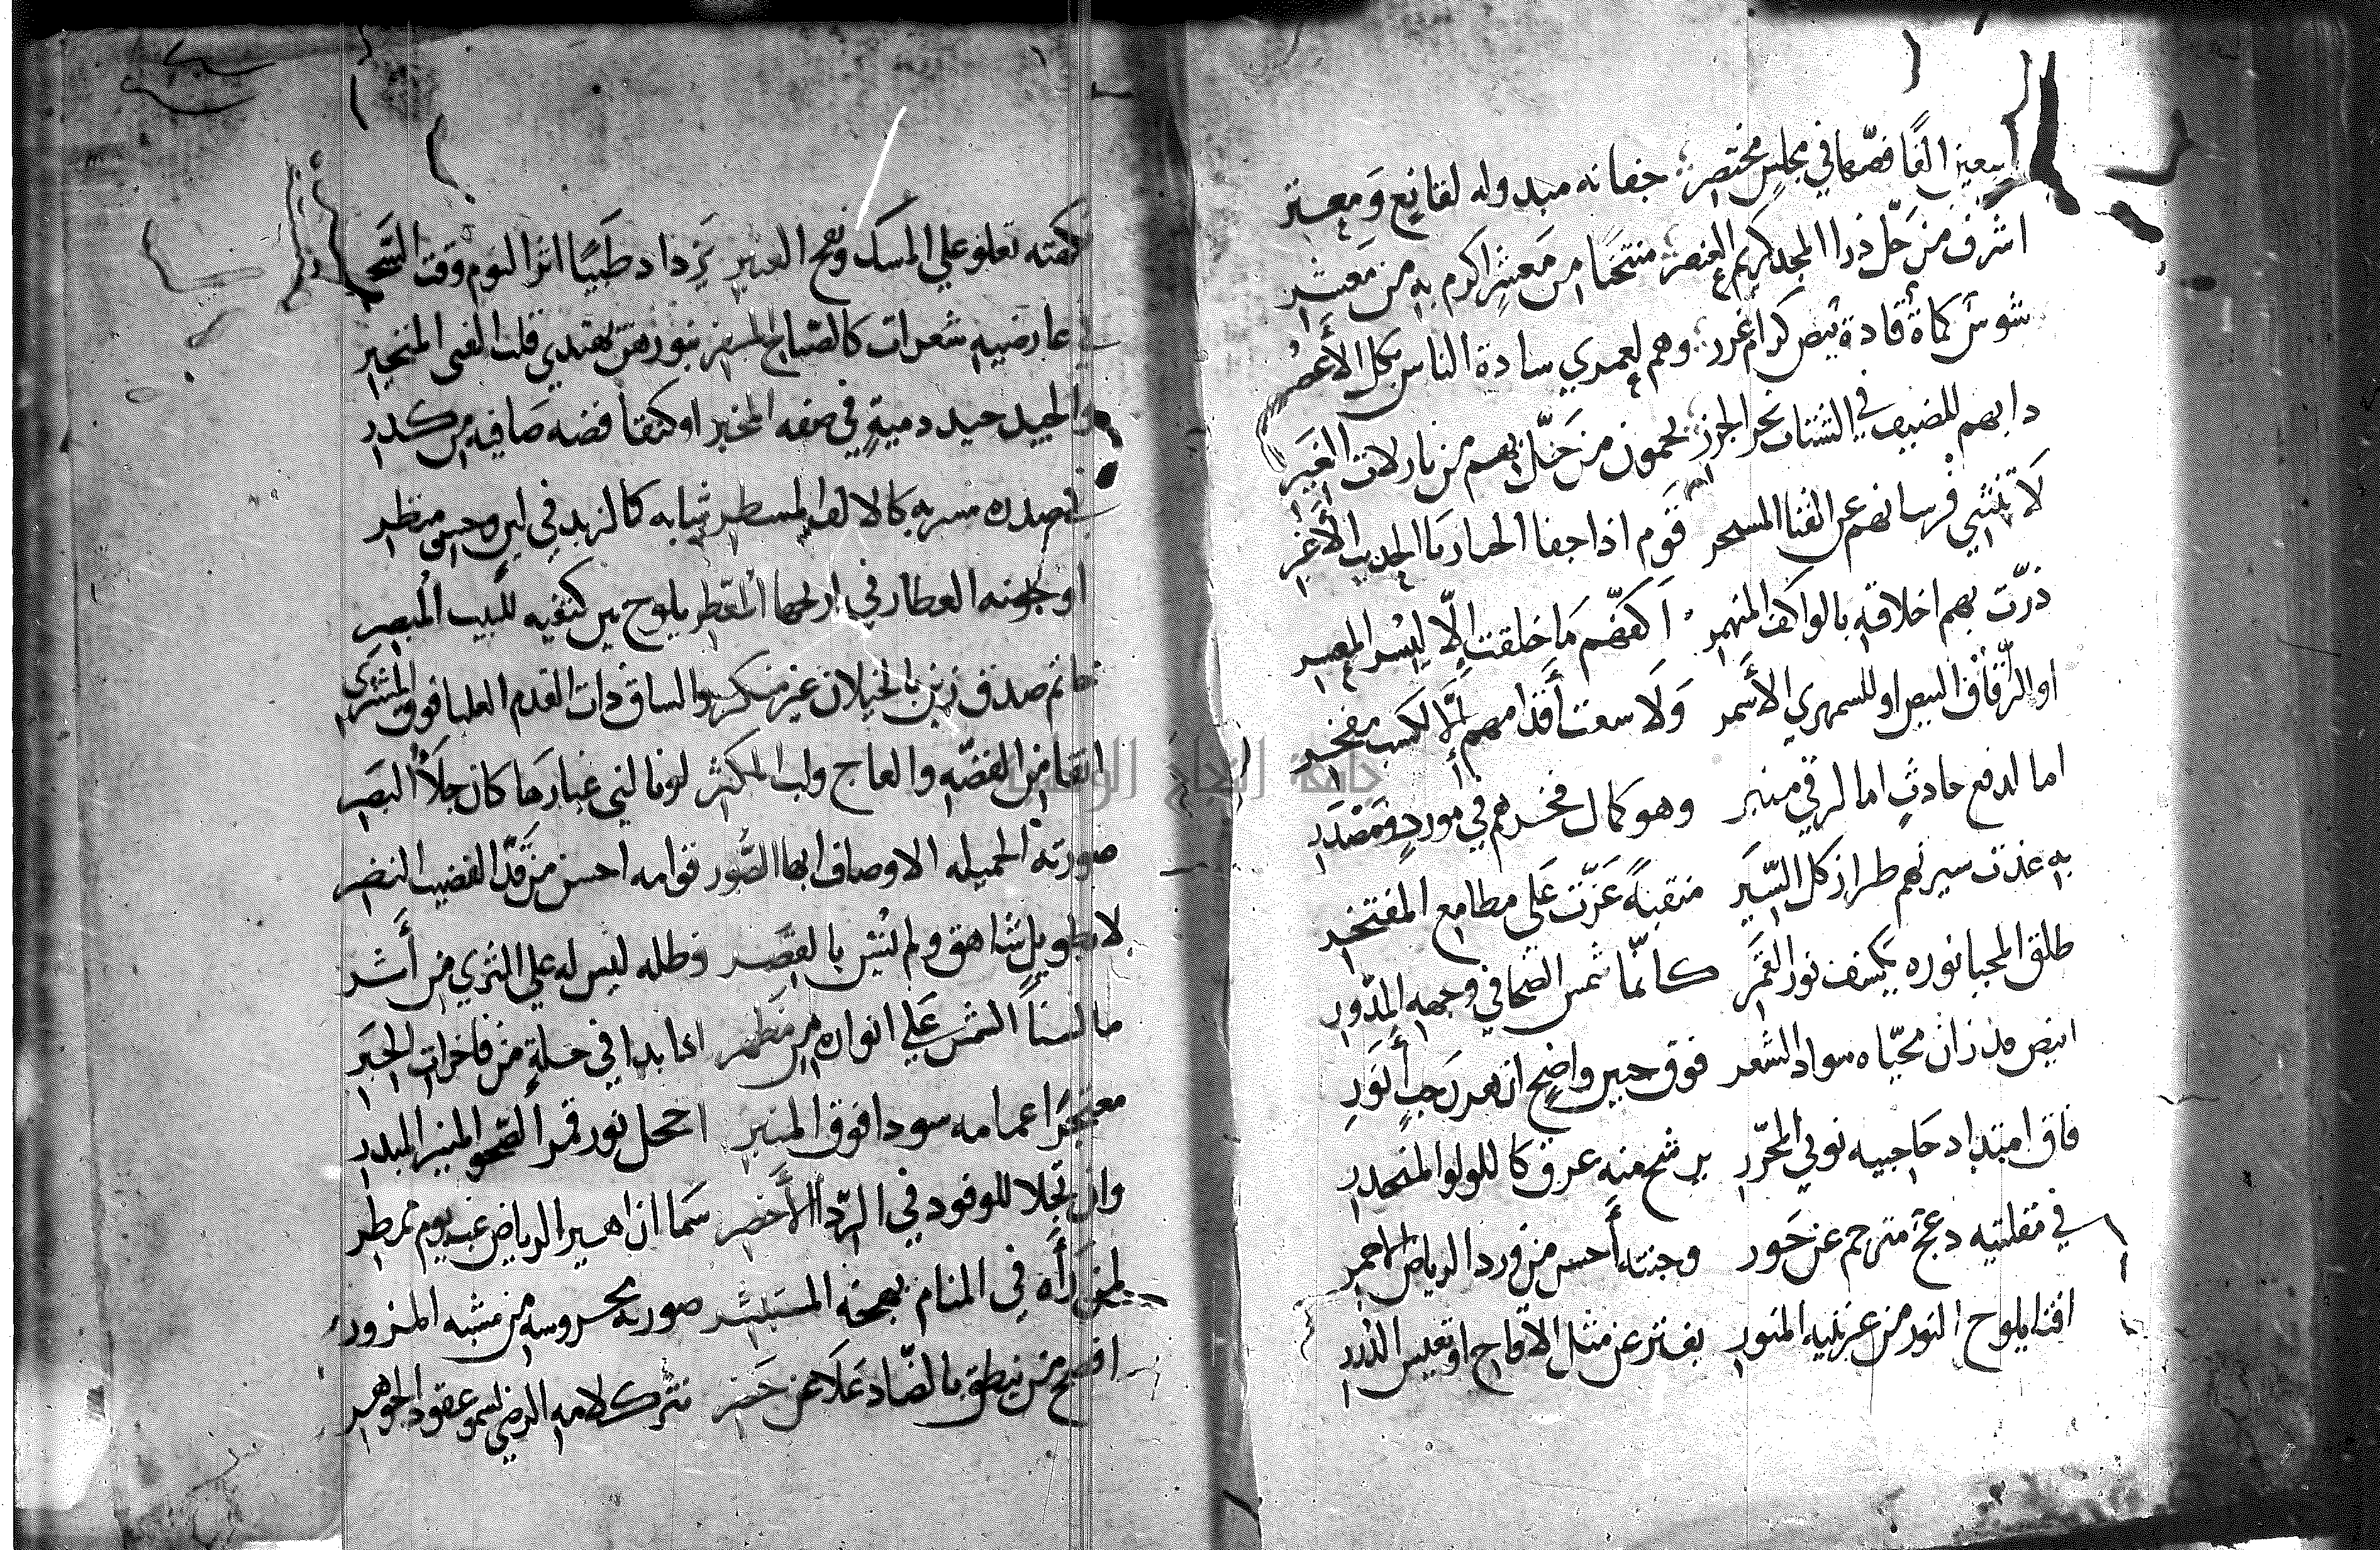 الفا فضها في مجلس مختصر جفانه مبدوله لقانع ومعتر
اشرف من حل ذرا المجد كريم العنصر منتخبا من معشر اكرم به من معشر
شوس كماة قادة بيض كرام غرر وهم لعمري سادة الناس بكل الأعصر
دابهم للضيف في الشتات نحر الجزر يحمون من حل بهم من الغير
لا تنثني فرسانهم عن القنا قوم اذا جفا الحيا الأغبر
ذرت بهم اخلاقه بالواكف المنهمر اكفهم ما خلقت إلا ليسر المعسر
او الرقاق البيض او للسمهري الأسمر ولا سعت أقدامهم إلا لكسب مفخر
اما لدفع حادث اما لرقي منبر وهو كمال فخرهم في مورد ومصدر
به غدت سيرتهم طراز كل السير منقبة عزت على مطامع المفتخر
طلق المحيا نوره يكسف نور القمر كانما شمس الضحا في وجهه المدور
ابيض مذ زان محياه سواد الشعر فوق جبين واضح ازهر رحب أنور
فاق امتداد حاجبيه نوني المحرر يرشح منه عرق كاللولو المنحدر
في مقلتيه دعج مترجم عن حور وجنته أحسن من ورد الرياض الاحمر
اقنا يلوح النور من عرنينه المنور يفتر عن مثل الاقاح او نفيس الدرر
نكهته تعلو علي المسك ونفح العنبر يزداد طيبا اثر النوم وقت السحر
في عارضيه شعرات كالصباح المسفر بنورهن يهتدي قلب الفتى المتحير
والجيد جيد دمية في المخبر او كنقا فضه صافيه من كدر
في صدره مسربه كالالف المسطر ثيابه كالزبد في لين وحسن منظر
او جونه العطار في ارجها المعطر يلوح بين كتفيه للبيب المبصر
خاتم صدق زين بالخيلان غير منكر والساق ذات القدم العليا فوق المشترى
انقا من الفضه والعاج ولب المكثر لونا لبني غبارها كان جلاء البصر
صورته الجميله الاوصاف ابها الصور قوامه احسن من قد القضيب النضر
لا بطويل شاهق ولم يشن بالقصر وظله ليس له علي الثري من أثر
ما لسنا الشمس علي انواره من مظهر اذا بدا في حلة من فاخرات الحبر
معتجرا عمامه سودا فوق المنبر اخجل نور قمر الصحو المنير المبدر
وان تجلا للوفود في الردا الأخضر سما ازاهير الرياض غب يوم ممطر
لمن رأه في المنام بهجة المستبشر صورته محروسه من شبه المزور
افصح من نطق بالضاد علا عن حصر نثر كلامه الرضي يسمو عقود الجوهر